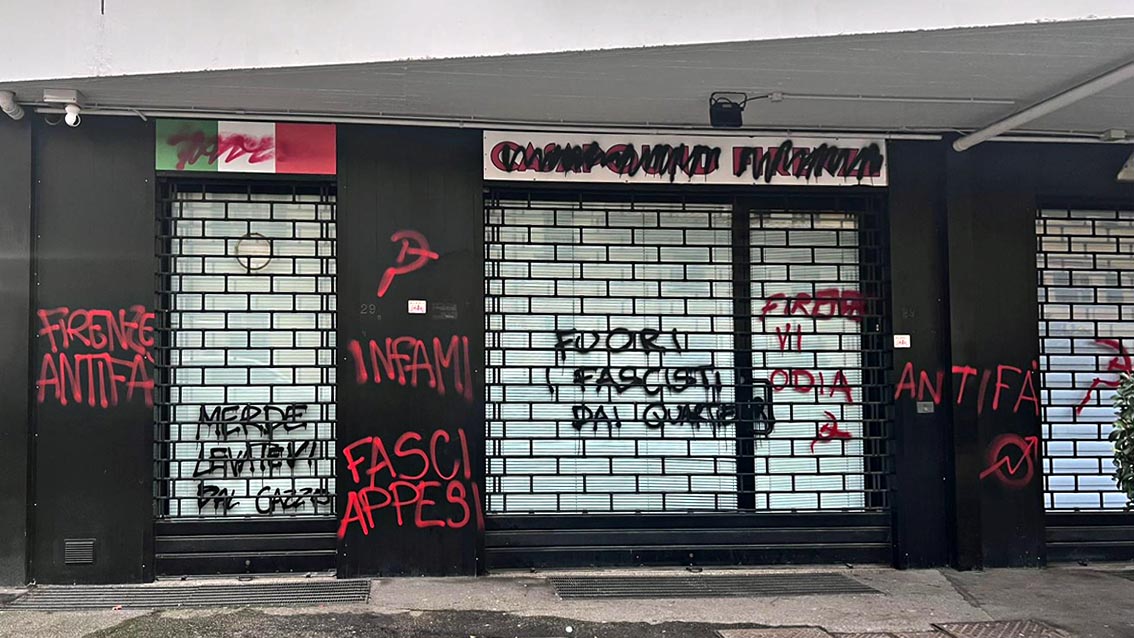 CASAPOUND FIRENZE
FIRENZE
ANTIFÀ
MERDE
LEVATEVI
DAL CAZZO
29
INFAMI
FASCI
APPESI
FUORI
I FASCISTI
DAI QUARTIERI
FIRENZE
VI
ODIA
ANTIFÀ